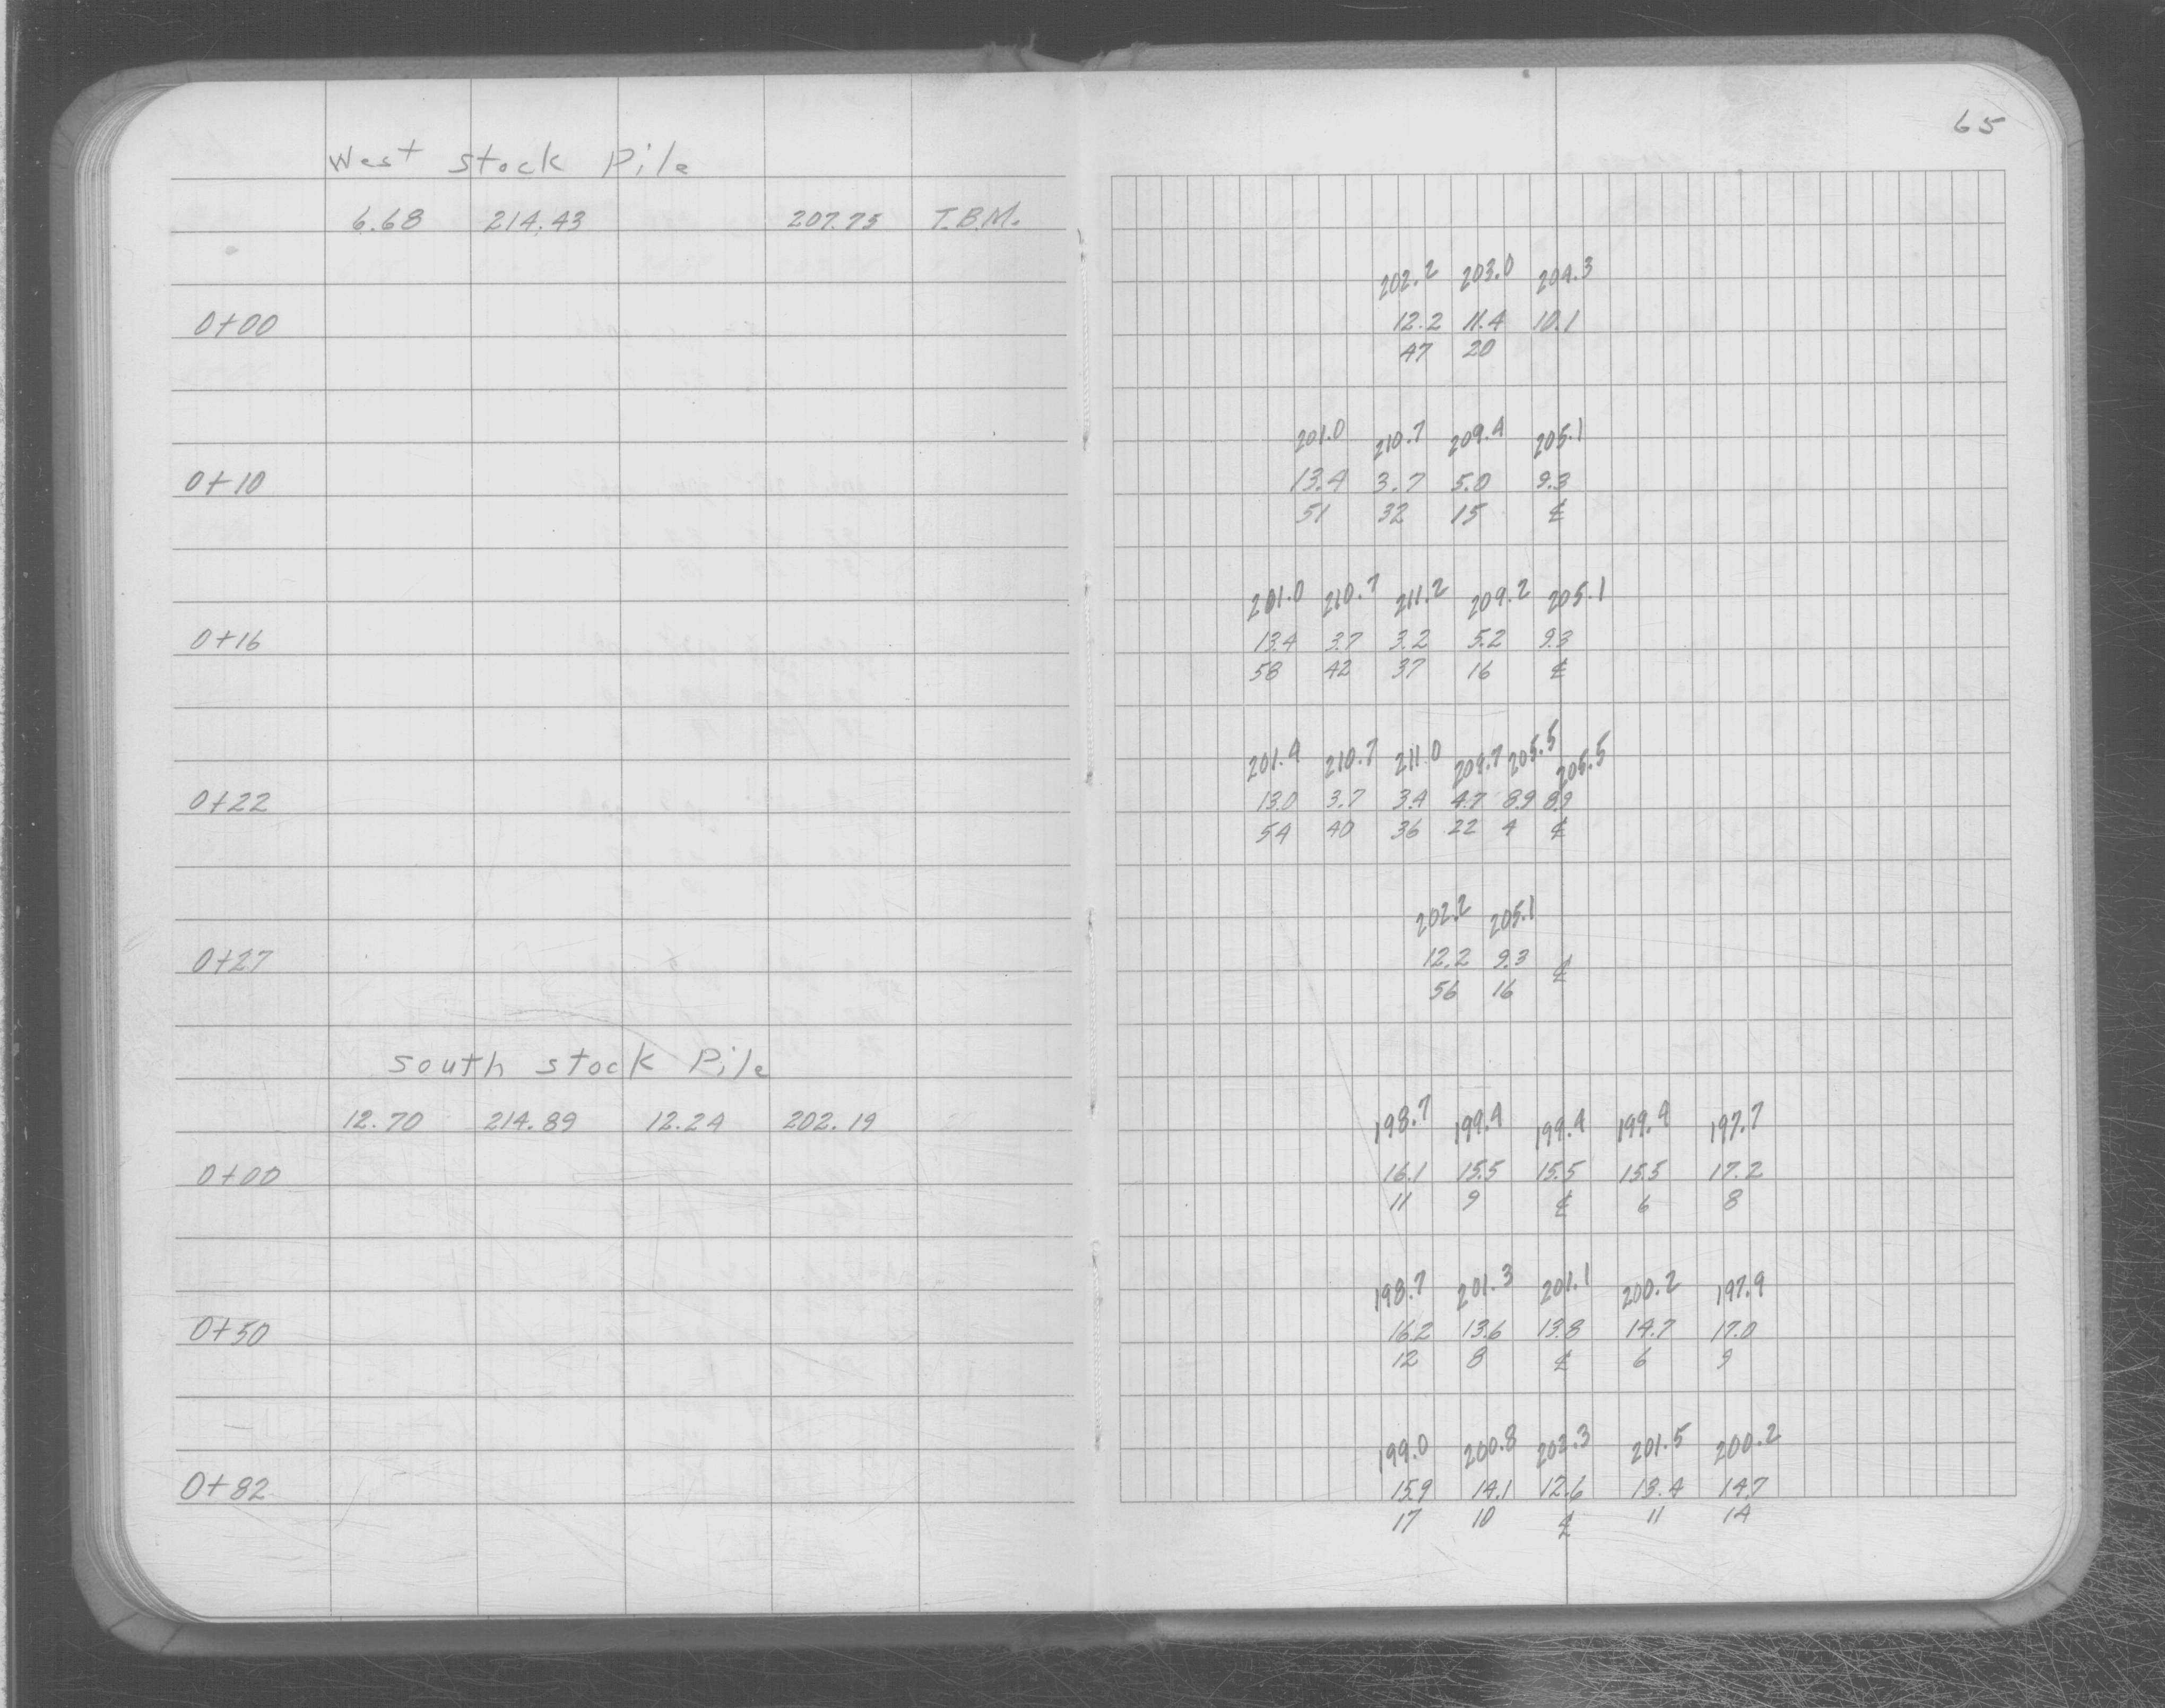 65
West Stock Pile
6.68 214.43 207.75 T.B.M.
202.2 203.0 204.3
0+00 12.2 11.4 10.1
47 20
201.0 210.7 209.4 205.1
0+10 13.4 3.7 5.0 9.3
51 32 15 ℄
201.0 210.7 211.2 209.2 205.1
0+16 13.4 3.7 3.2 5.2 9.3
58 42 37 16 ℄
201.4 210.7 211.0 209.7 205.5 205.5
0+22 13.0 3.7 3.4 4.7 8.9 8.9
54 40 36 22 4 ℄
202.2 205.1
0+27 12.2 9.3 ℄
56 16
South Stock Pile
12.70 214.89 12.24 202.19
198.7 199.4 199.4 199.4 197.7
0+00 16.1 15.5 15.5 15.5 17.2
11 9 ℄ 6 8
198.7 201.3 201.1 200.2 197.9
0+50 16.2 13.6 13.8 14.7 17.0
12 8 ℄ 6 9
199.0 200.8 202.3 201.5 200.2
0+82 15.9 14.1 12.6 13.4 14.7
17 10 ℄ 11 14